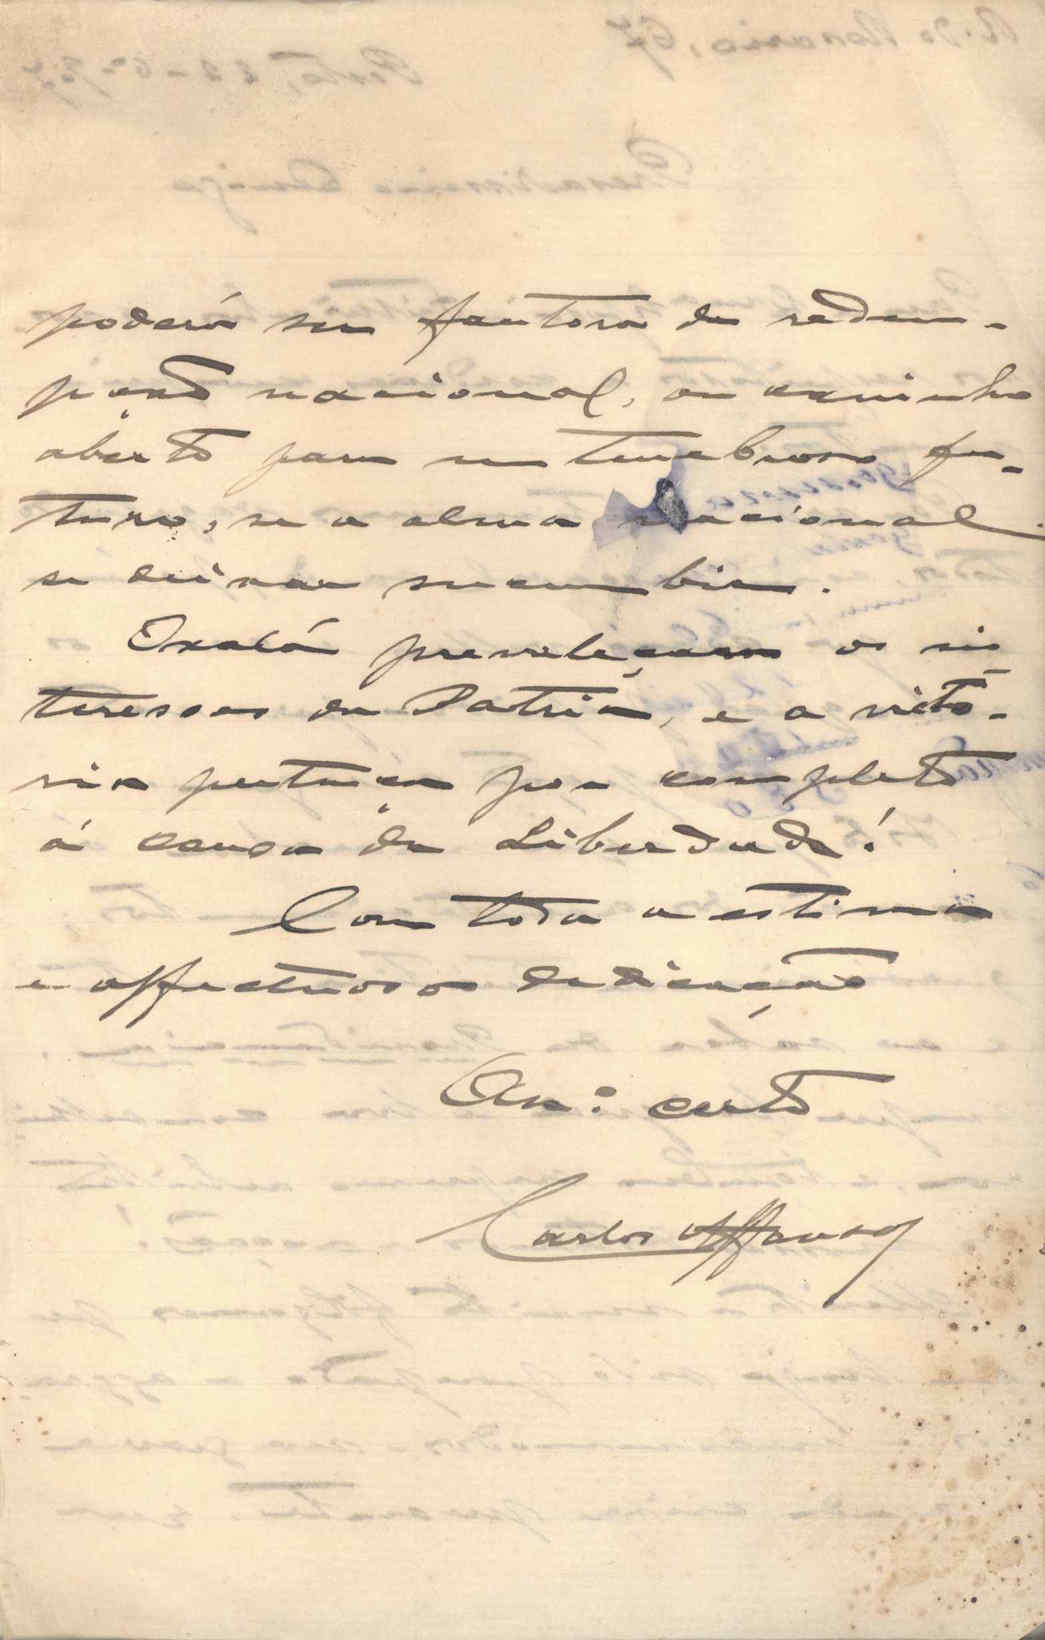 poderá ser fautora da redem-
pção nacional, ou caminho
aberto para um tenebroso fu-
turo, se a alma nacional
se deixar sucumbir.
Oxalá prevaleçam os in-
teresses da Patria, e a victo-
ria pertença por completo
á causa da Liberdade!
Com toda a estima
e affectuosa dedicação
Am.º certo
Carlos Affonso